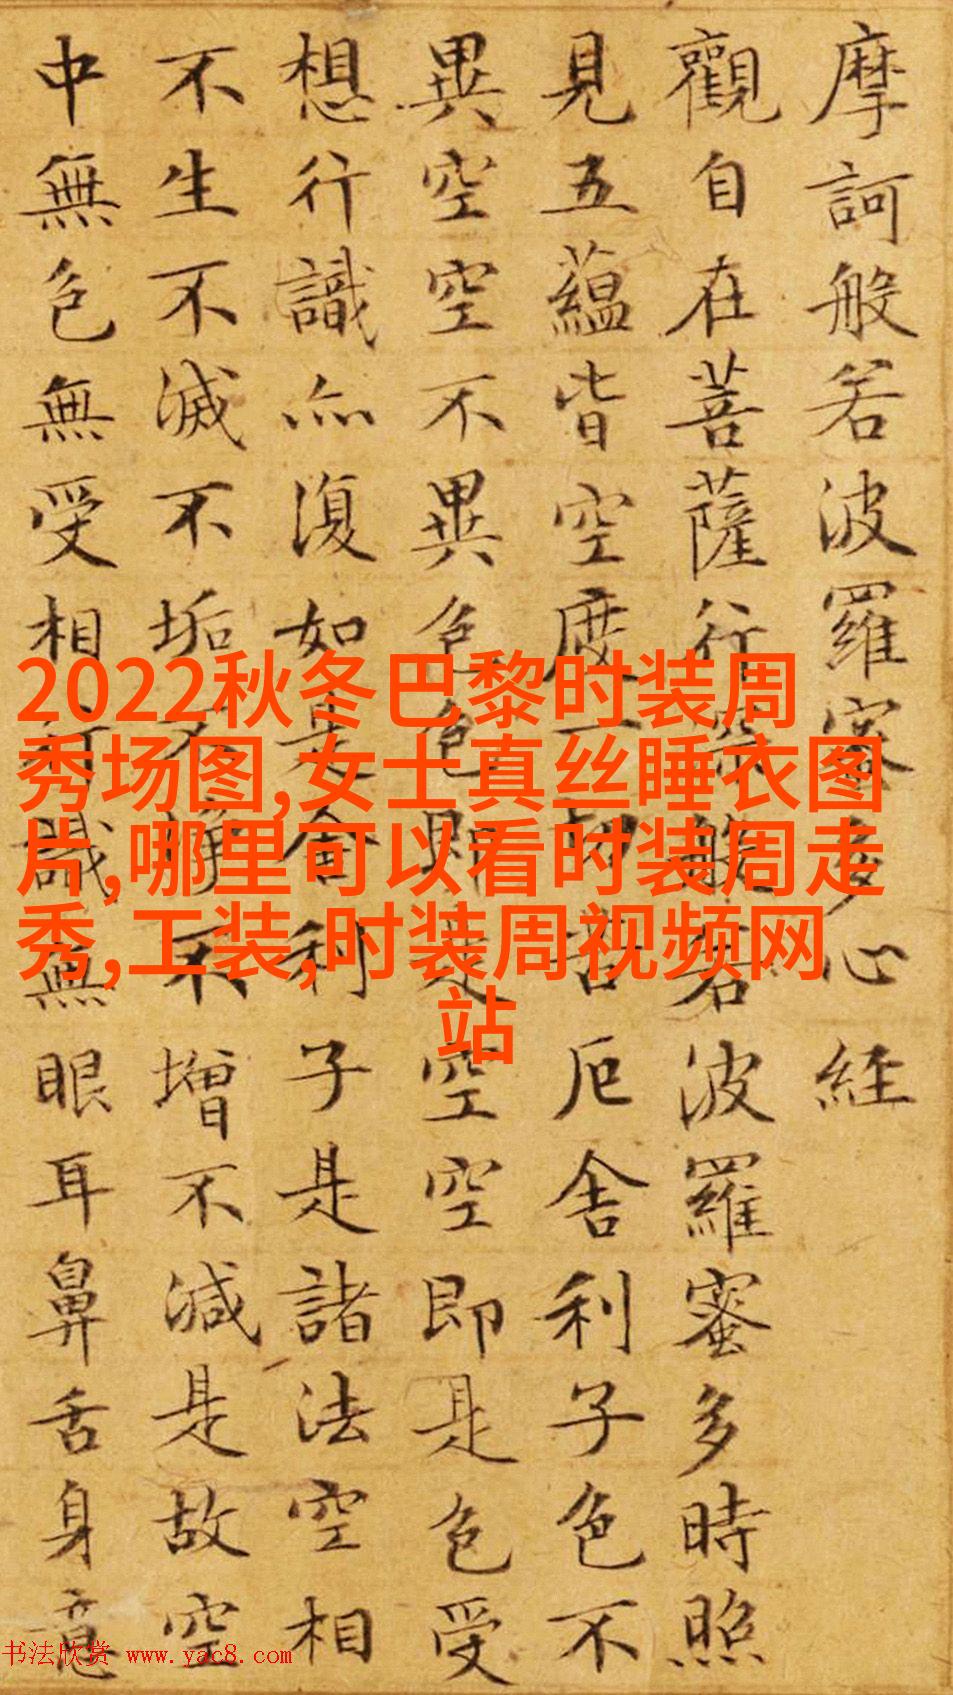 摩訶般若波羅蜜多心経
觀自在菩薩行深般若波羅蜜多時照
見五蘊皆空度一切苦厄舍利子色不
異空空不異色色即是空空即是色受
想行識亦復如是舍利子是諸法空相
不生不滅不垢不淨不增不減是故空
中無色無受想行識無眼耳鼻舌身意
2022秋冬巴黎时装周
秀场图,女士真丝睡衣图
片,哪里可以看时装周走
秀,工装,时装周视频网
站
书法欣赏 www.yac8.com